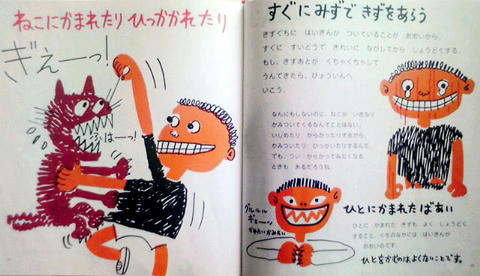 ねこにかまれたり ひっかかれたり
ぎえーっ!
ふはーっ!
すぐにみずで きずをあらう
きずぐちに ばいきんが ついていることが おおいから、
すぐに すいどうで きれいに ながしてから しょうどくする。
もし、きずあとが ぐちゃぐちゃして
うんできたら、びょういんへ
いこう。
なんにもしないのに、ねこが いきなり
かみついてくるなんてことはない。
いじめたり からかったりするから、
かみついたり ひっかいたりするんだ。
でも、つい からかってみたくなる
ときも あるだろうね。
グルルル
ゲェーン
ひとにかまれたばあい
ひとに かまれた きずも よく しょうどく
すること。くちのなかには ばいきんが
おおいのです。
ひとをかむのは、よくないことです。